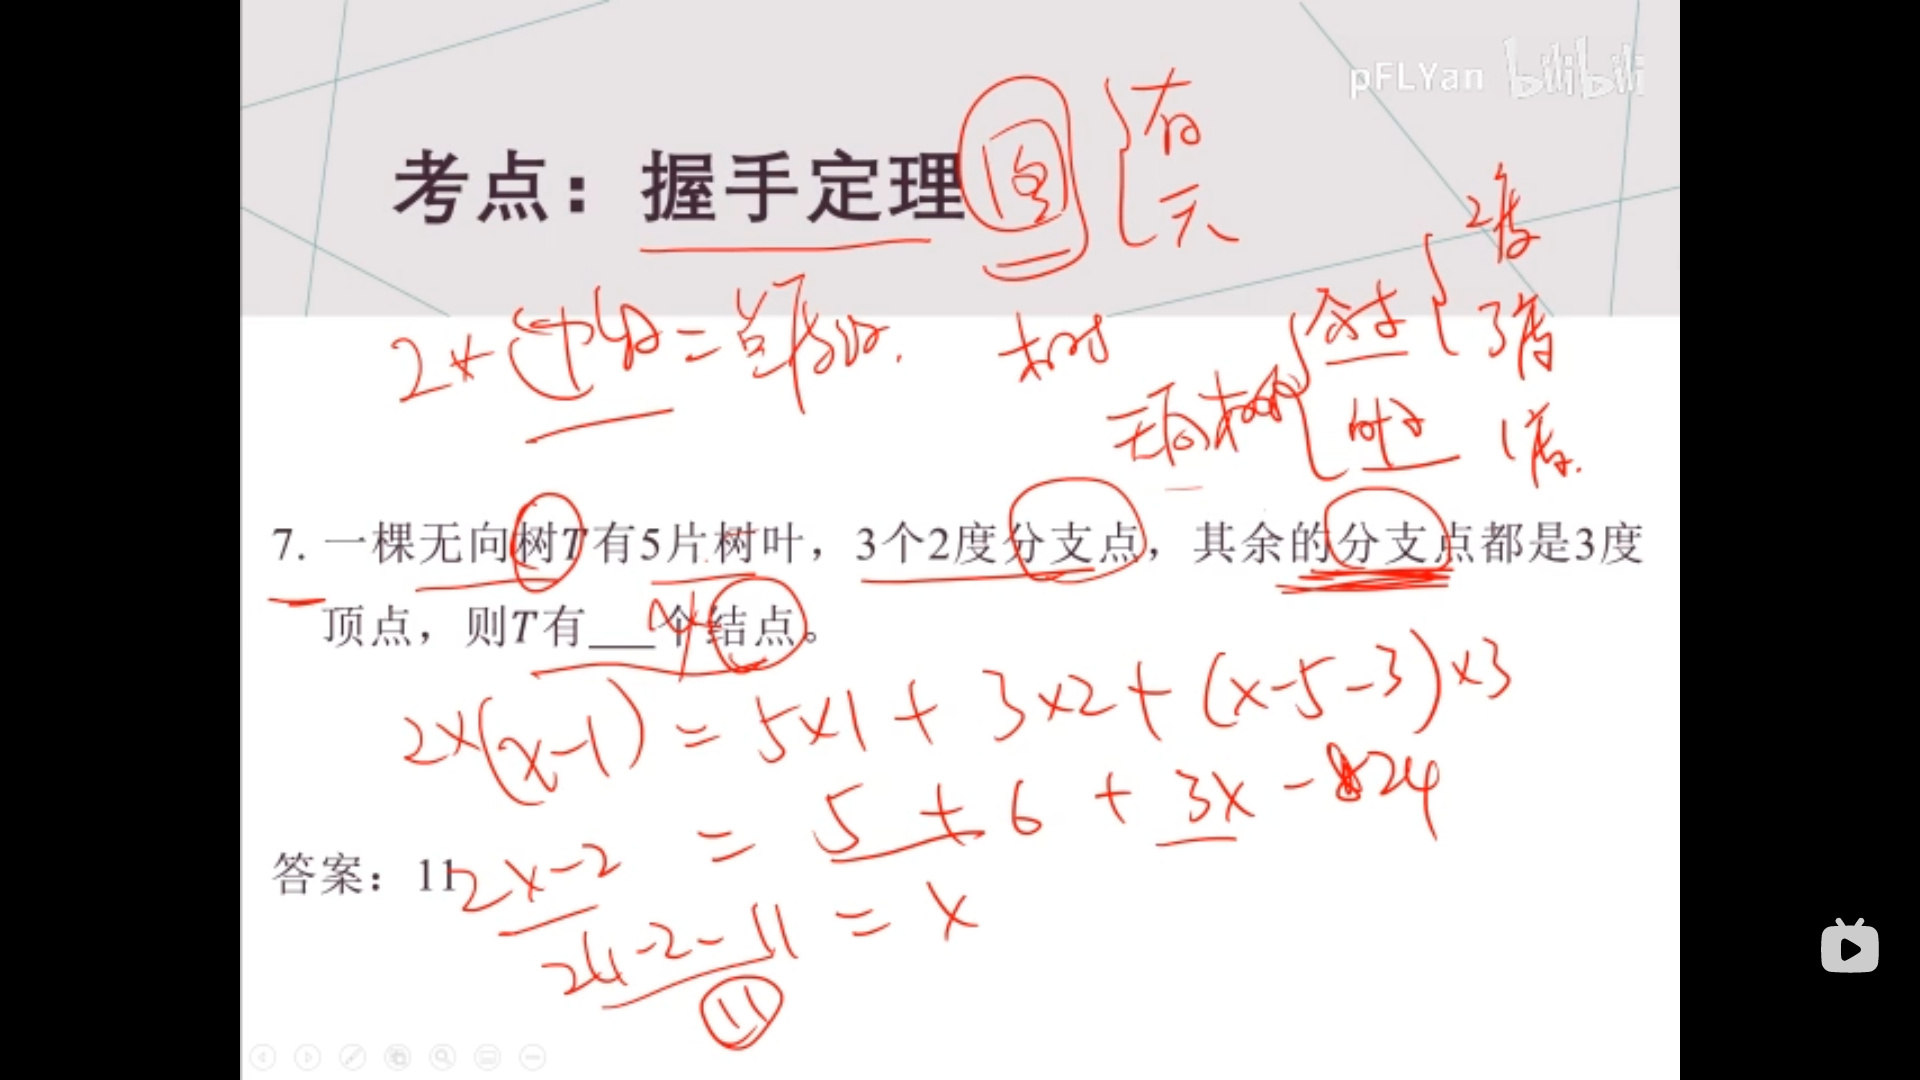 pFLYan bilibili
考点：握手定理 图 有
无
2度
2× 边数 = 总度数. 树 分支 3度
无向树的 叶子 1度.
7. 一棵无向树T有5片树叶，3个2度分支点，其余的分支点都是3度
顶点，则T有___个结点。
x
2×(x-1) = 5×1 + 3×2 + (x-5-3)×3
2x-2 = 5 + 6 + 3x - 24
答案：11
24-2-11 = x
11